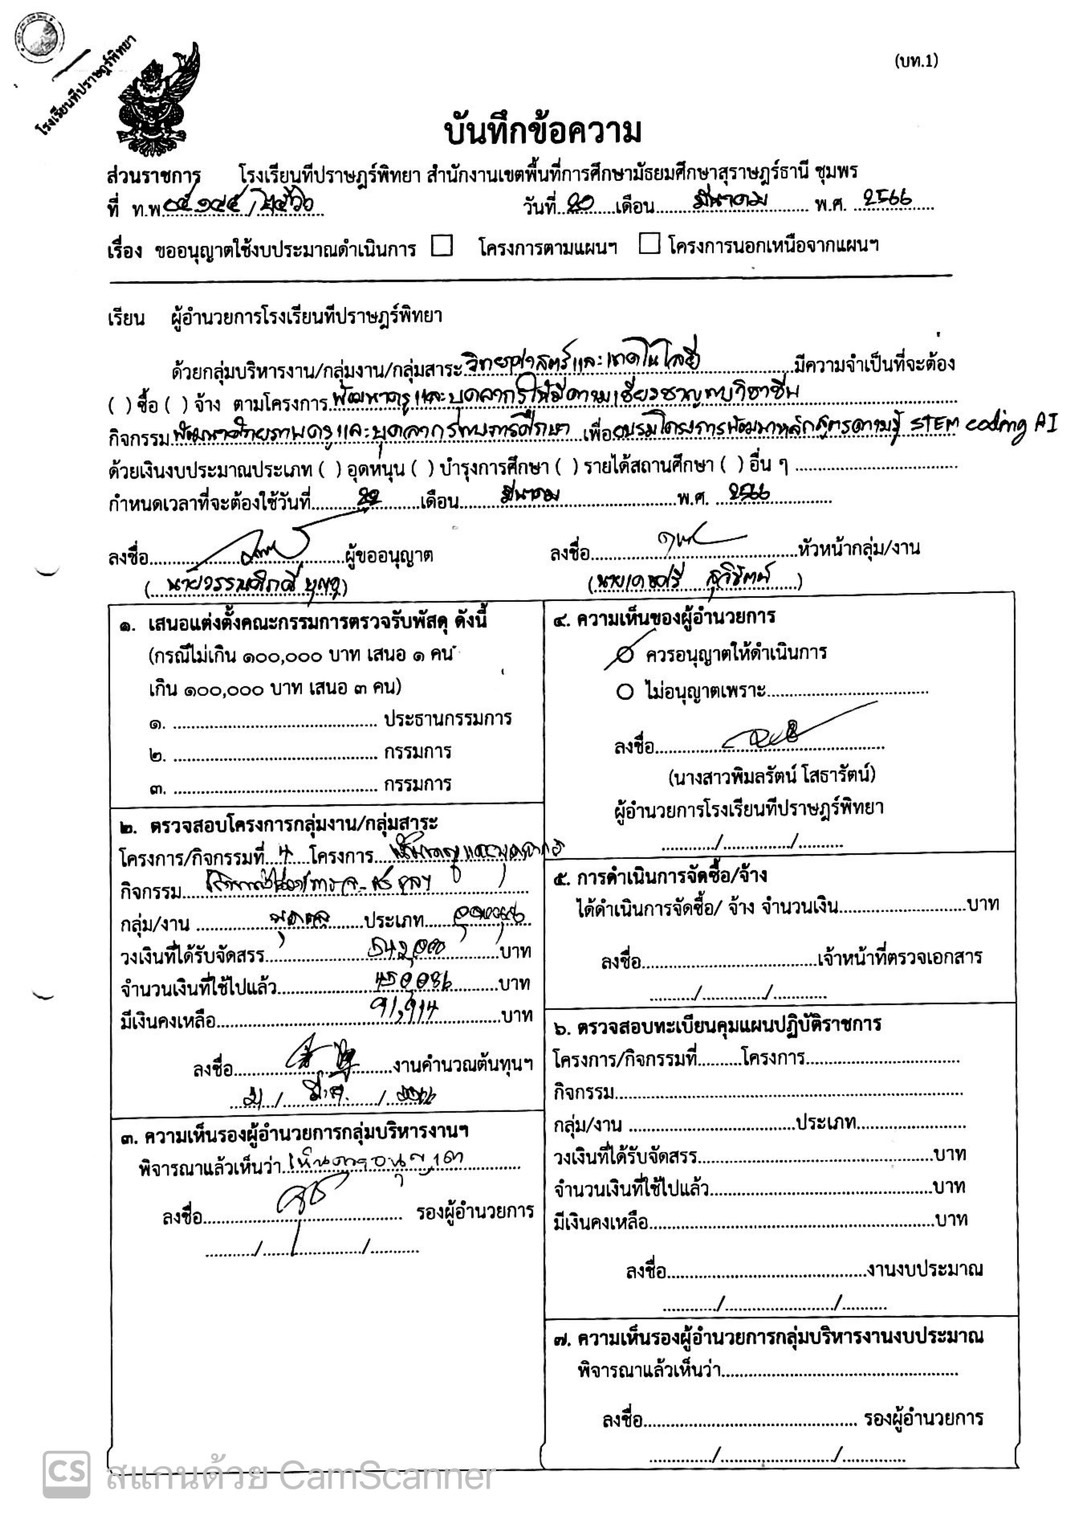 โรงเรียนทีปราษฎร์พิทยา
(บท.1)
บันทึกข้อความ
ส่วนราชการ โรงเรียนทีปราษฎร์พิทยา สำนักงานเขตพื้นที่การศึกษามัธยมศึกษาสุราษฎร์ธานี ชุมพร
ที่ ท.พ. วันที่ 20 เดือน มีนาคม พ.ศ. 2566
เรื่อง ขออนุญาตใช้งบประมาณดำเนินการ ☐ โครงการตามแผนฯ ☐ โครงการนอกเหนือจากแผนฯ
เรียน ผู้อำนวยการโรงเรียนทีปราษฎร์พิทยา
ด้วยกลุ่มบริหารงาน/กลุ่มงาน/กลุ่มสาระ วิทยาศาสตร์และเทคโนโลยี มีความจำเป็นที่จะต้อง
( ) ซื้อ ( ) จ้าง ตามโครงการ พัฒนาครูและบุคลากรให้มีความเชี่ยวชาญทางวิชาชีพ
กิจกรรม พัฒนาศักยภาพครูและบุคลากรทางการศึกษา เพื่อ อบรมโครงการพัฒนาหลักสูตรความรู้ STEM coding AI
ด้วยเงินงบประมาณประเภท ( ) อุดหนุน ( ) บำรุงการศึกษา ( ) รายได้สถานศึกษา ( ) อื่น ๆ
กำหนดเวลาที่จะต้องใช้วันที่ 22 เดือน มีนาคม พ.ศ. 2566
ลงชื่อ ผู้ขออนุญาต ลงชื่อ หัวหน้ากลุ่ม/งาน
๑. เสนอแต่งตั้งคณะกรรมการตรวจรับพัสดุ ดังนี้
(กรณีไม่เกิน ๑๐๐,๐๐๐ บาท เสนอ ๑ คน
เกิน ๑๐๐,๐๐๐ บาท เสนอ ๓ คน)
๑. ประธานกรรมการ
๒. กรรมการ
๓. กรรมการ
๒. ตรวจสอบโครงการกลุ่มงาน/กลุ่มสาระ
โครงการ/กิจกรรมที่ 4 โครงการ
กิจกรรม
กลุ่ม/งาน บุคคล ประเภท อุดหนุน
วงเงินที่ได้รับจัดสรร 542,000 บาท
จำนวนเงินที่ใช้ไปแล้ว 450,086 บาท
มีเงินคงเหลือ 91,914 บาท
ลงชื่อ งานคำนวณต้นทุนฯ
21 / มี.ค. / 2566
๓. ความเห็นรองผู้อำนวยการกลุ่มบริหารงานฯ
พิจารณาแล้วเห็นว่า เห็นควรอนุญาต
ลงชื่อ รองผู้อำนวยการ
๔. ความเห็นของผู้อำนวยการ
ควรอนุญาตให้ดำเนินการ
ไม่อนุญาตเพราะ
ลงชื่อ
(นางสาวพิมลรัตน์ โสธารัตน์)
ผู้อำนวยการโรงเรียนทีปราษฎร์พิทยา
๕. การดำเนินการจัดซื้อ/จ้าง
ได้ดำเนินการจัดซื้อ/ จ้าง จำนวนเงิน บาท
ลงชื่อ เจ้าหน้าที่ตรวจเอกสาร
๖. ตรวจสอบทะเบียนคุมแผนปฏิบัติราชการ
โครงการ/กิจกรรมที่ โครงการ
กิจกรรม
กลุ่ม/งาน ประเภท
วงเงินที่ได้รับจัดสรร บาท
จำนวนเงินที่ใช้ไปแล้ว บาท
มีเงินคงเหลือ บาท
ลงชื่อ งานงบประมาณ
๗. ความเห็นรองผู้อำนวยการกลุ่มบริหารงานงบประมาณ
พิจารณาแล้วเห็นว่า
ลงชื่อ รองผู้อำนวยการ
CS สแกนด้วย CamScanner